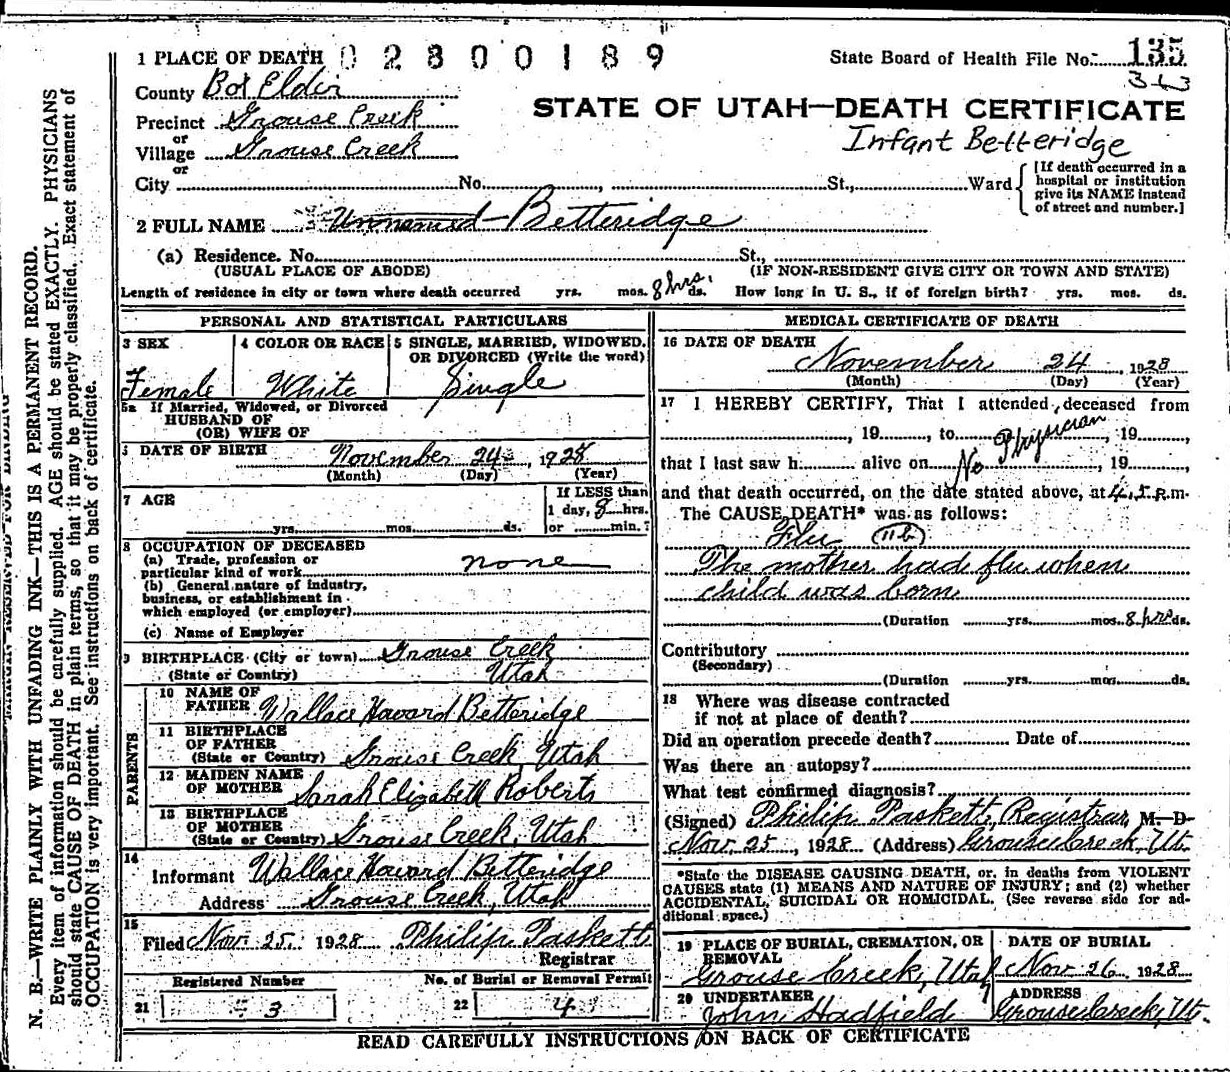 1 PLACE OF DEATH 02800189
State Board of Health File No. 135
County Box Elder
343
STATE OF UTAH—DEATH CERTIFICATE
Precinct Grouse Creek
or
Infant Betteridge
Village Grouse Creek
or
City No. St., Ward
[If death occurred in a
hospital or institution
give its NAME instead
of street and number.]
2 FULL NAME Unnamed Betteridge
(a) Residence. No. St.,
(USUAL PLACE OF ABODE) (IF NON-RESIDENT GIVE CITY OR TOWN AND STATE)
Length of residence in city or town where death occurred yrs. mos. 8 hrs. ds. How long in U. S., if of foreign birth? yrs. mos. ds.
PERSONAL AND STATISTICAL PARTICULARS
3 SEX
Female
4 COLOR OR RACE
White
5 SINGLE, MARRIED, WIDOWED,
OR DIVORCED (Write the word)
Single
5a If Married, Widowed, or Divorced
HUSBAND OF
(OR) WIFE OF
DATE OF BIRTH November 24 1928
(Month) (Day) (Year)
7 AGE
yrs. mos. ds.
If LESS than
1 day, 8 hrs.
or min.?
8 OCCUPATION OF DECEASED
(a) Trade, profession or
particular kind of work none
(b) General nature of industry,
business, or establishment in
which employed (or employer)
(c) Name of Employer
9 BIRTHPLACE (City or town) Grouse Creek
(State or Country) Utah
PARENTS
10 NAME OF
FATHER Wallace Havard Betteridge
11 BIRTHPLACE
OF FATHER
(State or Country) Grouse Creek, Utah
12 MAIDEN NAME
OF MOTHER Sarah Elizabeth Roberts
13 BIRTHPLACE
OF MOTHER
(State or Country) Grouse Creek, Utah
14
Informant Wallace Havard Betteridge
Address Grouse Creek, Utah
15
Filed Nov. 25. 1928 Philip Paskett
Registrar
Registered Number No. of Burial or Removal Permit
21 3 22 4
MEDICAL CERTIFICATE OF DEATH
16 DATE OF DEATH
November 24, 1928
(Month) (Day) (Year)
17 I HEREBY CERTIFY, That I attended deceased from
, 19 , to , 19
No Physician
that I last saw h alive on , 19
and that death occurred, on the date stated above, at 4.5 P.m.
The CAUSE DEATH* was as follows:
Flu 11b
The mother had flu when
child was born
(Duration yrs. mos. 8 hrs ds.
Contributory
(Secondary)
(Duration yrs. mos. ds.
18 Where was disease contracted
if not at place of death?
Did an operation precede death? Date of
Was there an autopsy?
What test confirmed diagnosis?
(Signed) Philip Paskett, Registrar, M. D.
Nov. 25, 1928 (Address) Grouse Creek, Ut.
*State the DISEASE CAUSING DEATH, or, in deaths from VIOLENT
CAUSES state (1) MEANS AND NATURE OF INJURY; and (2) whether
ACCIDENTAL, SUICIDAL OR HOMICIDAL. (See reverse side for ad-
ditional space.)
19 PLACE OF BURIAL, CREMATION, OR
REMOVAL
Grouse Creek, Utah
DATE OF BURIAL
Nov 26, 1928
20 UNDERTAKER
John Hadfield
ADDRESS
Grouse Creek, Ut.
READ CAREFULLY INSTRUCTIONS ON BACK OF CERTIFICATE
N. B.—WRITE PLAINLY WITH UNFADING INK—THIS IS A PERMANENT RECORD.
Every item of information should be carefully supplied. AGE should be stated EXACTLY. PHYSICIANS
should state CAUSE OF DEATH in plain terms, so that it may be properly classified. Exact statement of
OCCUPATION is very important. See instructions on back of certificate.